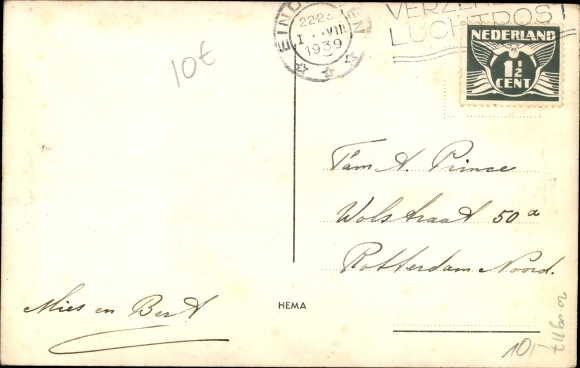 EINDHOVEN
2223
I · VIII
1939
VERZEND
LUCHTPOST
NEDERLAND
1½
CENT
10€
Fam A. Prince
Wolstraat 50a
Rotterdam Noord.
Mies en Bert
HEMA
10,-